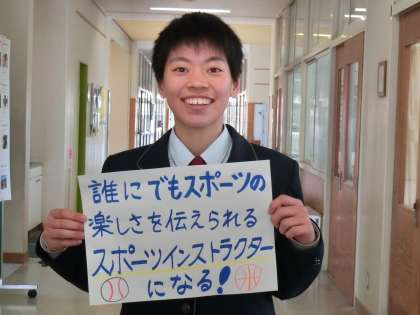 誰にでもスポーツの
楽しさを伝えられる
スポーツインストラクター
になる!